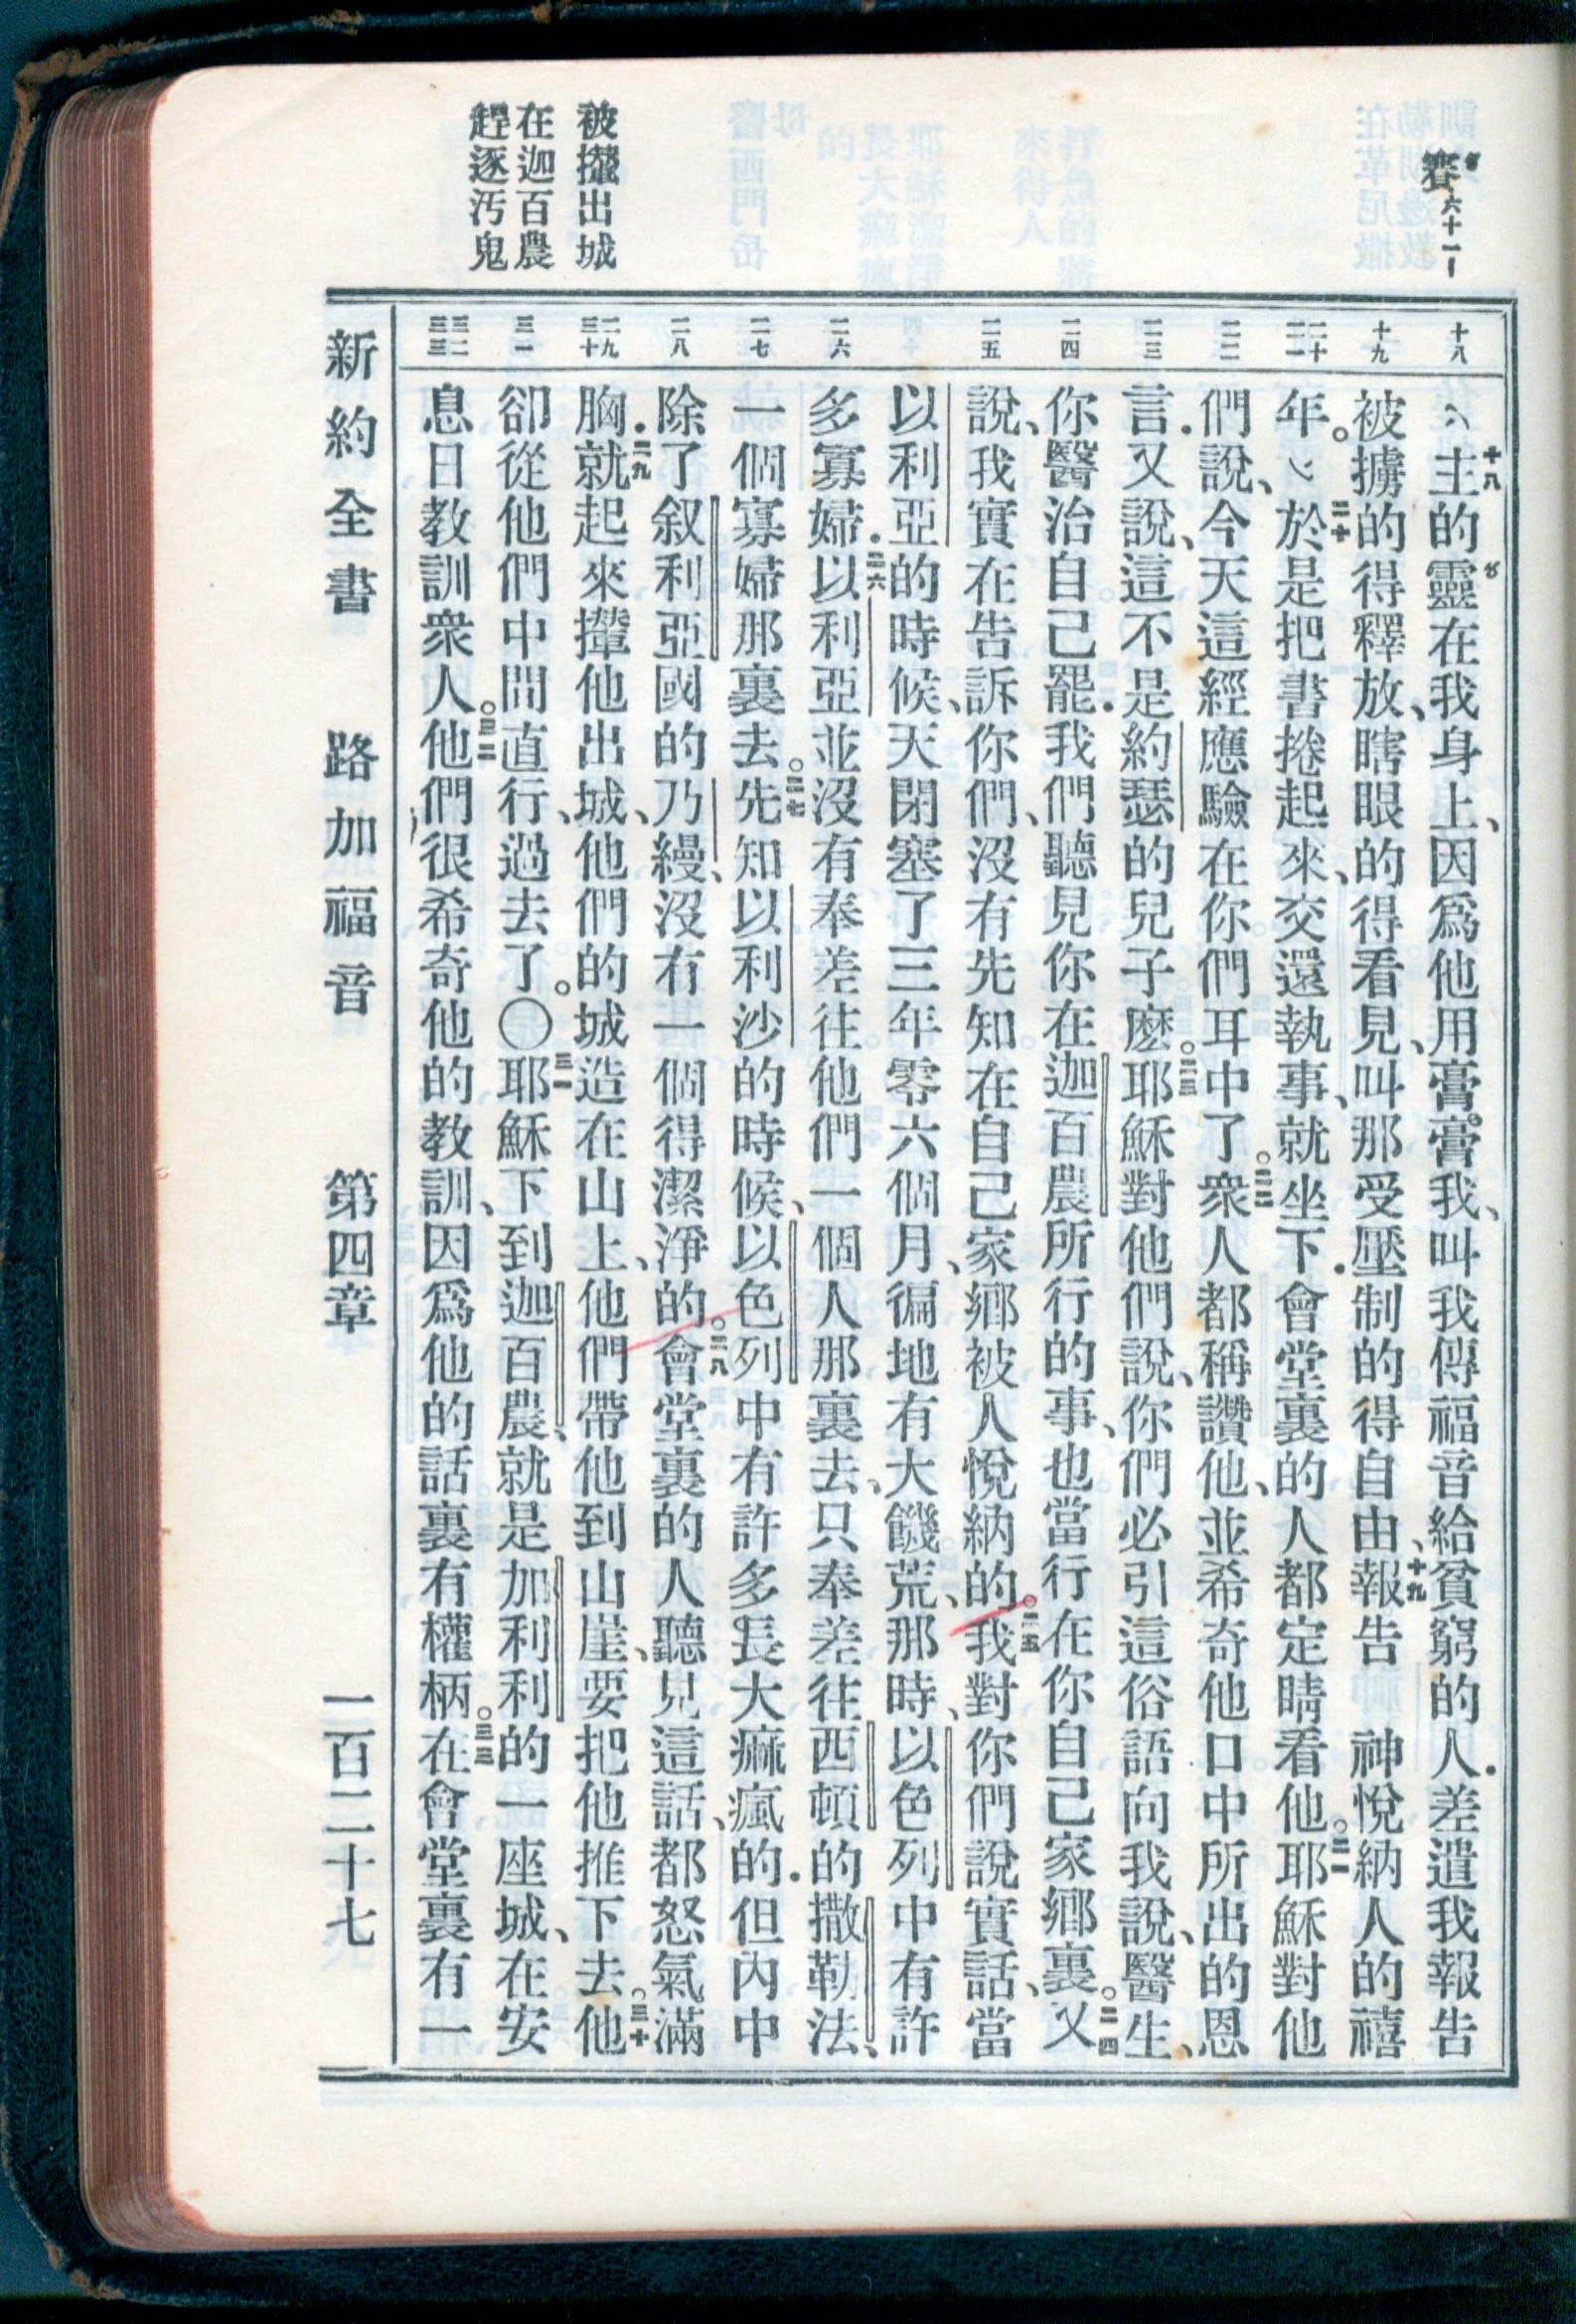 賽六十一1
被攆出城
在迦百農
趕逐汚鬼
十八
十九
二十
二一
二二
二三
二四
二五
二六
二七
二八
二九
三十
三一
三二
三三
十八主的靈在我身上、因爲他用膏膏我、叫我傳福音給貧窮的人．差遣我報告
被擄的得釋放、瞎眼的得看見、叫那受壓制的得自由、十九報告 神悅納人的禧
年。二十於是把書捲起來、交還執事、就坐下．會堂裏的人都定睛看他。二一耶穌對他
們說、今天這經應驗在你們耳中了。二二衆人都稱讚他、並希奇他口中所出的恩
言．又說、這不是約瑟的兒子麽。二三耶穌對他們說、你們必引這俗語向我說、醫生、
你醫治自己罷．我們聽見你在迦百農所行的事、也當行在你自己家鄉裏。二四又
說、我實在告訴你們、沒有先知在自己家鄉被人悅納的。二五我對你們說實話、當
以利亞的時候、天閉塞了三年零六個月、徧地有大饑荒、那時、以色列中有許
多寡婦．二六以利亞並沒有奉差往他們一個人那裏去、只奉差往西頓的撒勒法、
一個寡婦那裏去。二七先知以利沙的時候、以色列中有許多長大痲瘋的．但內中
除了叙利亞國的乃縵、沒有一個得潔淨的。二八會堂裏的人聽見這話、都怒氣滿
胸．二九就起來攆他出城、他們的城造在山上、他們帶他到山崖、要把他推下去。三十他
卻從他們中間直行、過去了。〇三一耶穌下到迦百農、就是加利利的一座城、在安
息日教訓衆人。三二他們很希奇他的教訓、因爲他的話裏有權柄。三三在會堂裏有一
新約全書 路加福音 第四章 一百二十七